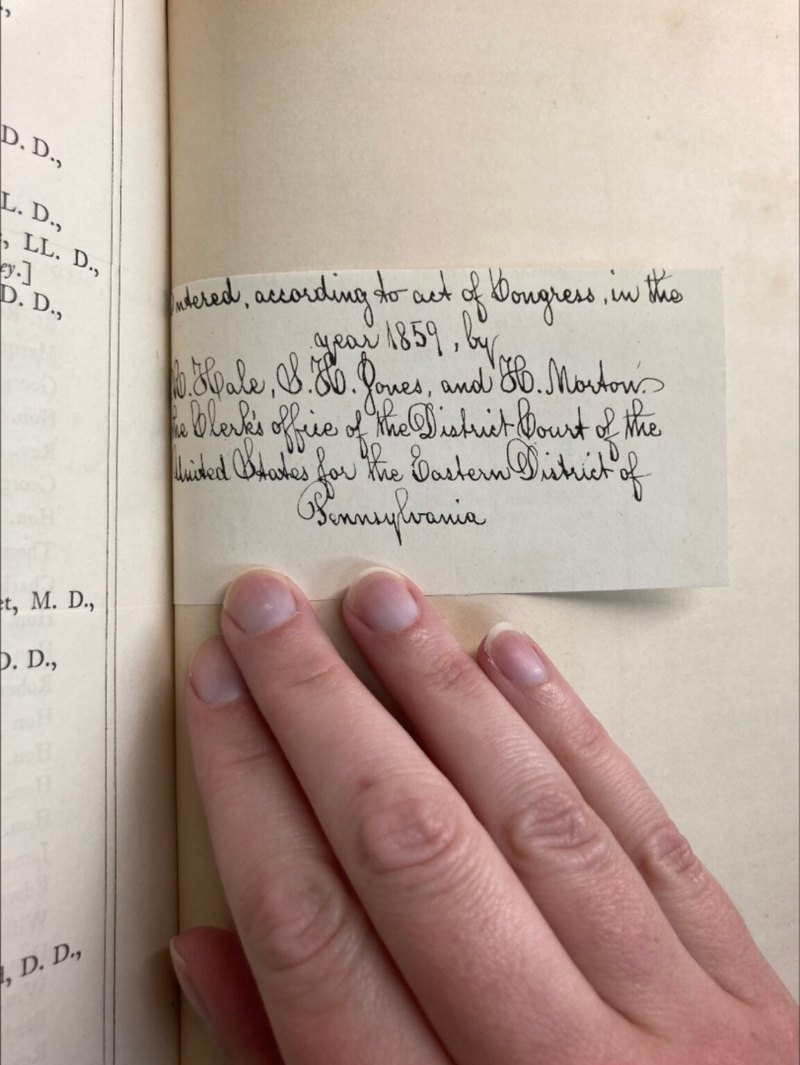 D. D.,
L. D.,
, LL. D.,
ey.]
D. D.,
et, M. D.,
D. D.,
D. D.,
Entered, according to act of Congress, in the
year 1859, by
Hale, S. H. Jones, and H. Morton.
he Clerk's office of the District Court of the
United States for the Eastern District of
Pennsylvania